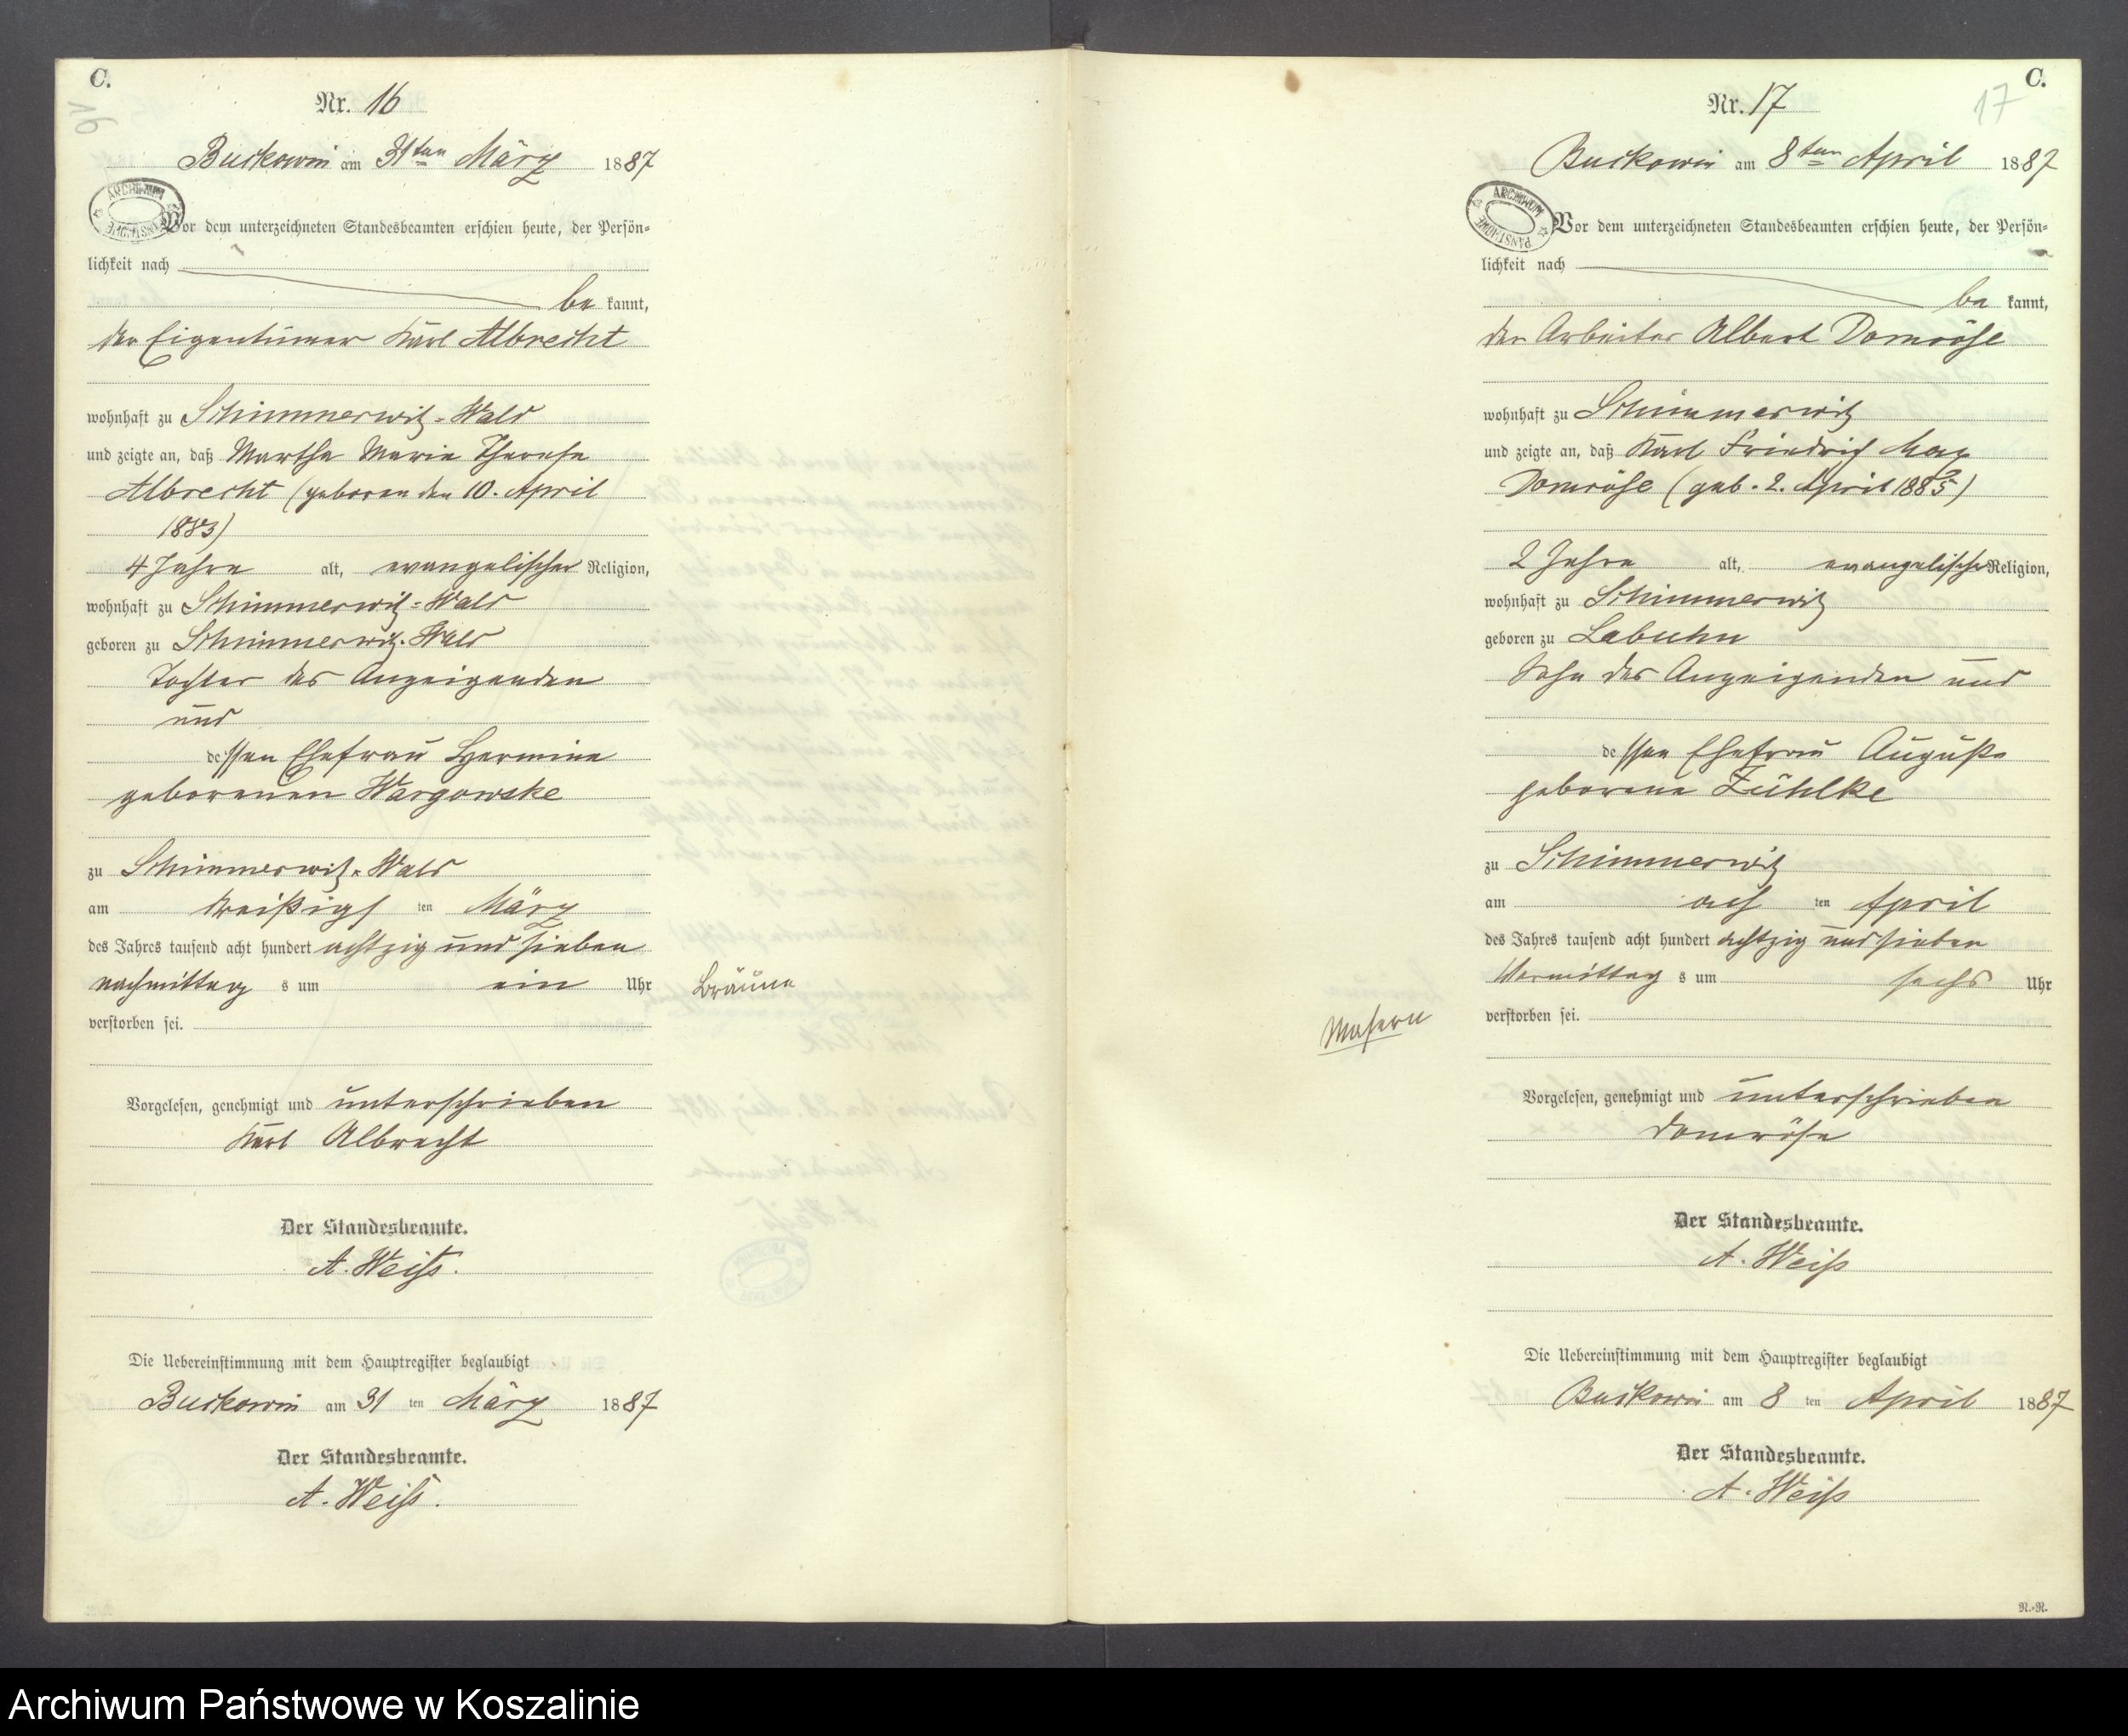 C.
16
Nr. 16
Buckowin am 31ten März 1887
ARCHIWUM
PAŃSTWOWE
Vor dem unterzeichneten Standesbeamten erschien heute, der Persön-
lichkeit nach
be kannt,
der Eigentümer Karl Albrecht
wohnhaft zu Schimmerwitz-Wald
und zeigte an, daß Martha Marie Therese
Albrecht (geboren den 10. April
1883)
4 Jahre alt, evangelischer Religion,
wohnhaft zu Schimmerwitz-Wald
geboren zu Schimmerwitz-Wald
Tochter des Anzeigenden
und
dessen Ehefrau Hermine
geborenen Wargowske
zu Schimmerwitz-Wald
am dreißigs ten März
des Jahres tausend acht hundert achtzig und sieben
nachmittag s um ein Uhr
Bräune
verstorben sei.
Vorgelesen, genehmigt und unterschrieben
Karl Albrecht
Der Standesbeamte.
A. Weiß.
Die Uebereinstimmung mit dem Hauptregister beglaubigt
Buckowin am 31 ten März 1887
Der Standesbeamte.
A. Weiß.
C.
17
Nr. 17
Buckowin am 8ten April 1887
ARCHIWUM
PAŃSTWOWE
Vor dem unterzeichneten Standesbeamten erschien heute, der Persön-
lichkeit nach
be kannt,
der Arbeiter Albert Domröse
wohnhaft zu Schimmerwitz
und zeigte an, daß Karl Friedrich Max
Domröse (geb. 2. April 1885)
2 Jahre alt, evangelischer Religion,
wohnhaft zu Schimmerwitz
geboren zu Labuhn
Sohn des Anzeigenden und
dessen Ehefrau Auguste
geborene Zühlke
zu Schimmerwitz
am ach ten April
des Jahres tausend acht hundert achtzig und sieben
Vormittag s um sechs Uhr
Masern
verstorben sei.
Vorgelesen, genehmigt und unterschrieben
Domröse
Der Standesbeamte.
A. Weiß
Die Uebereinstimmung mit dem Hauptregister beglaubigt
Buckowin am 8 ten April 1887
Der Standesbeamte.
A. Weiß
R.-R.
Archiwum Państwowe w Koszalinie